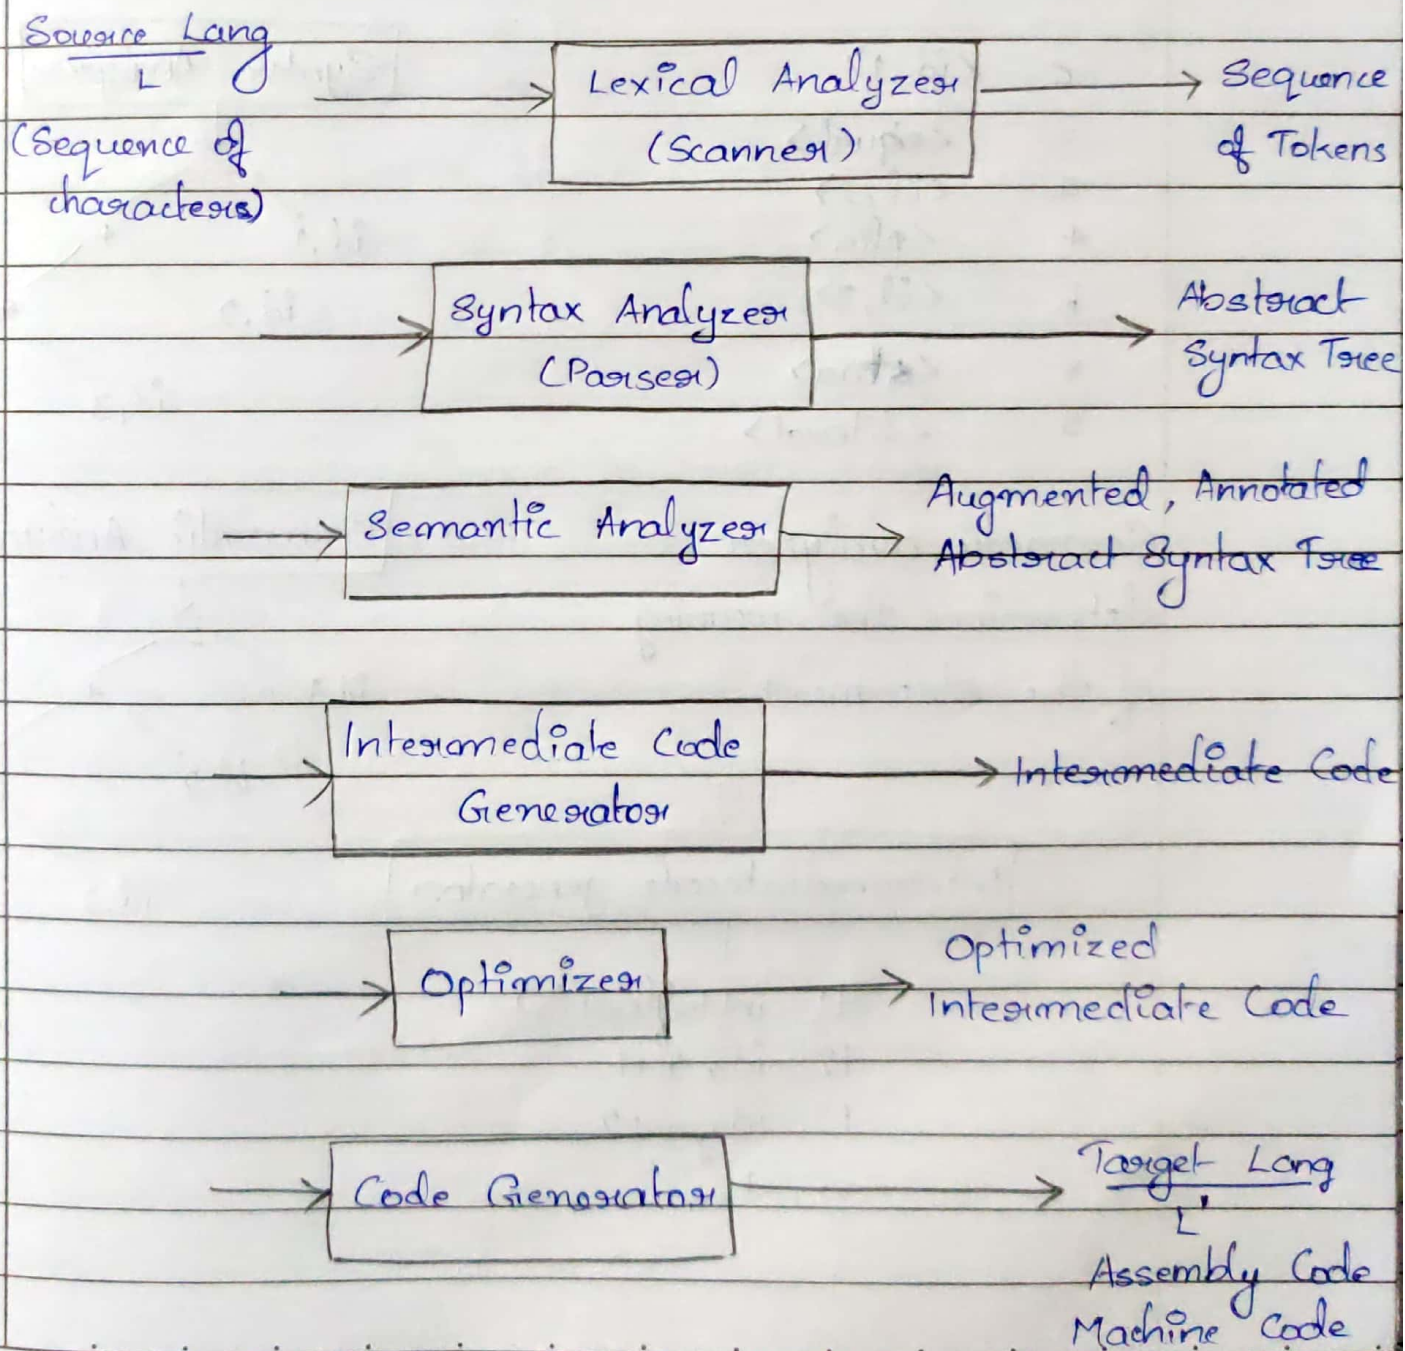 Source Lang
L
(Sequence of
characters)
Lexical Analyzer
(Scanner)
Sequence
of Tokens
Syntax Analyzer
(Parser)
Abstract
Syntax Tree
Semantic Analyzer
Augmented, Annotated
Abstract Syntax Tree
Intermediate Code
Generator
Intermediate Code
Optimizer
Optimized
Intermediate Code
Code Generator
Target Lang
L'
Assembly Code
Machine Code